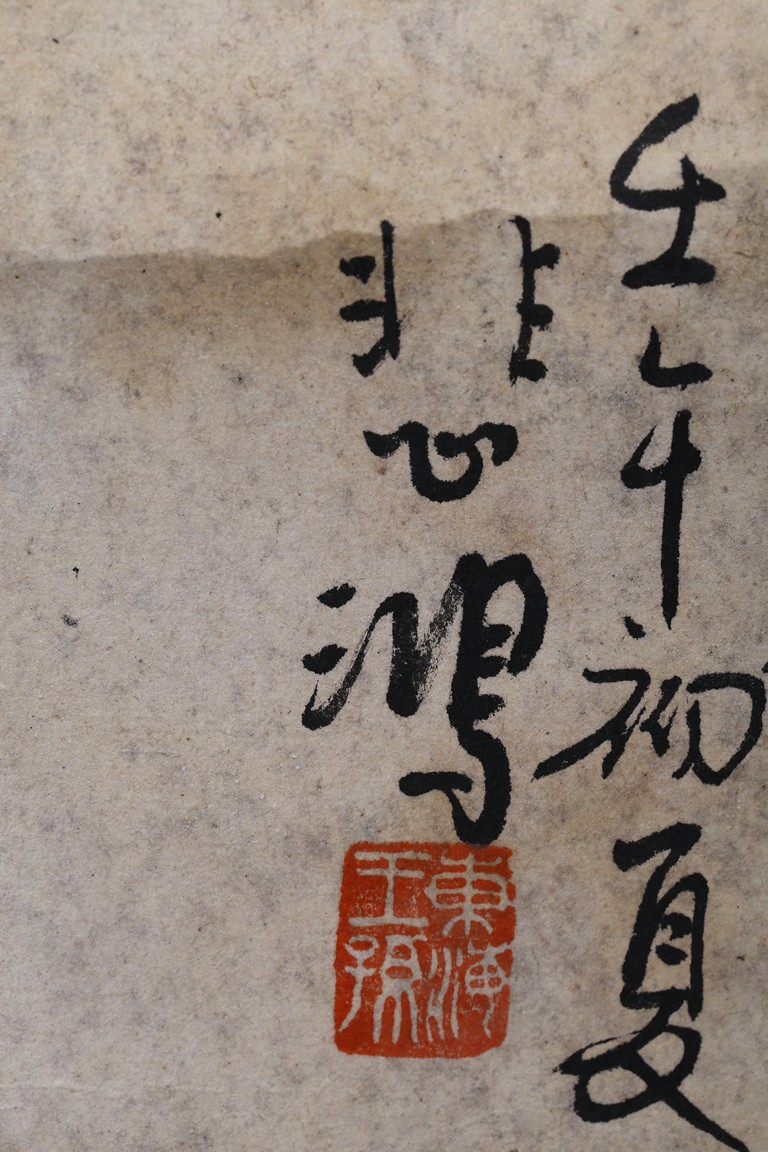 壬午初夏
悲鴻
東海
王孫